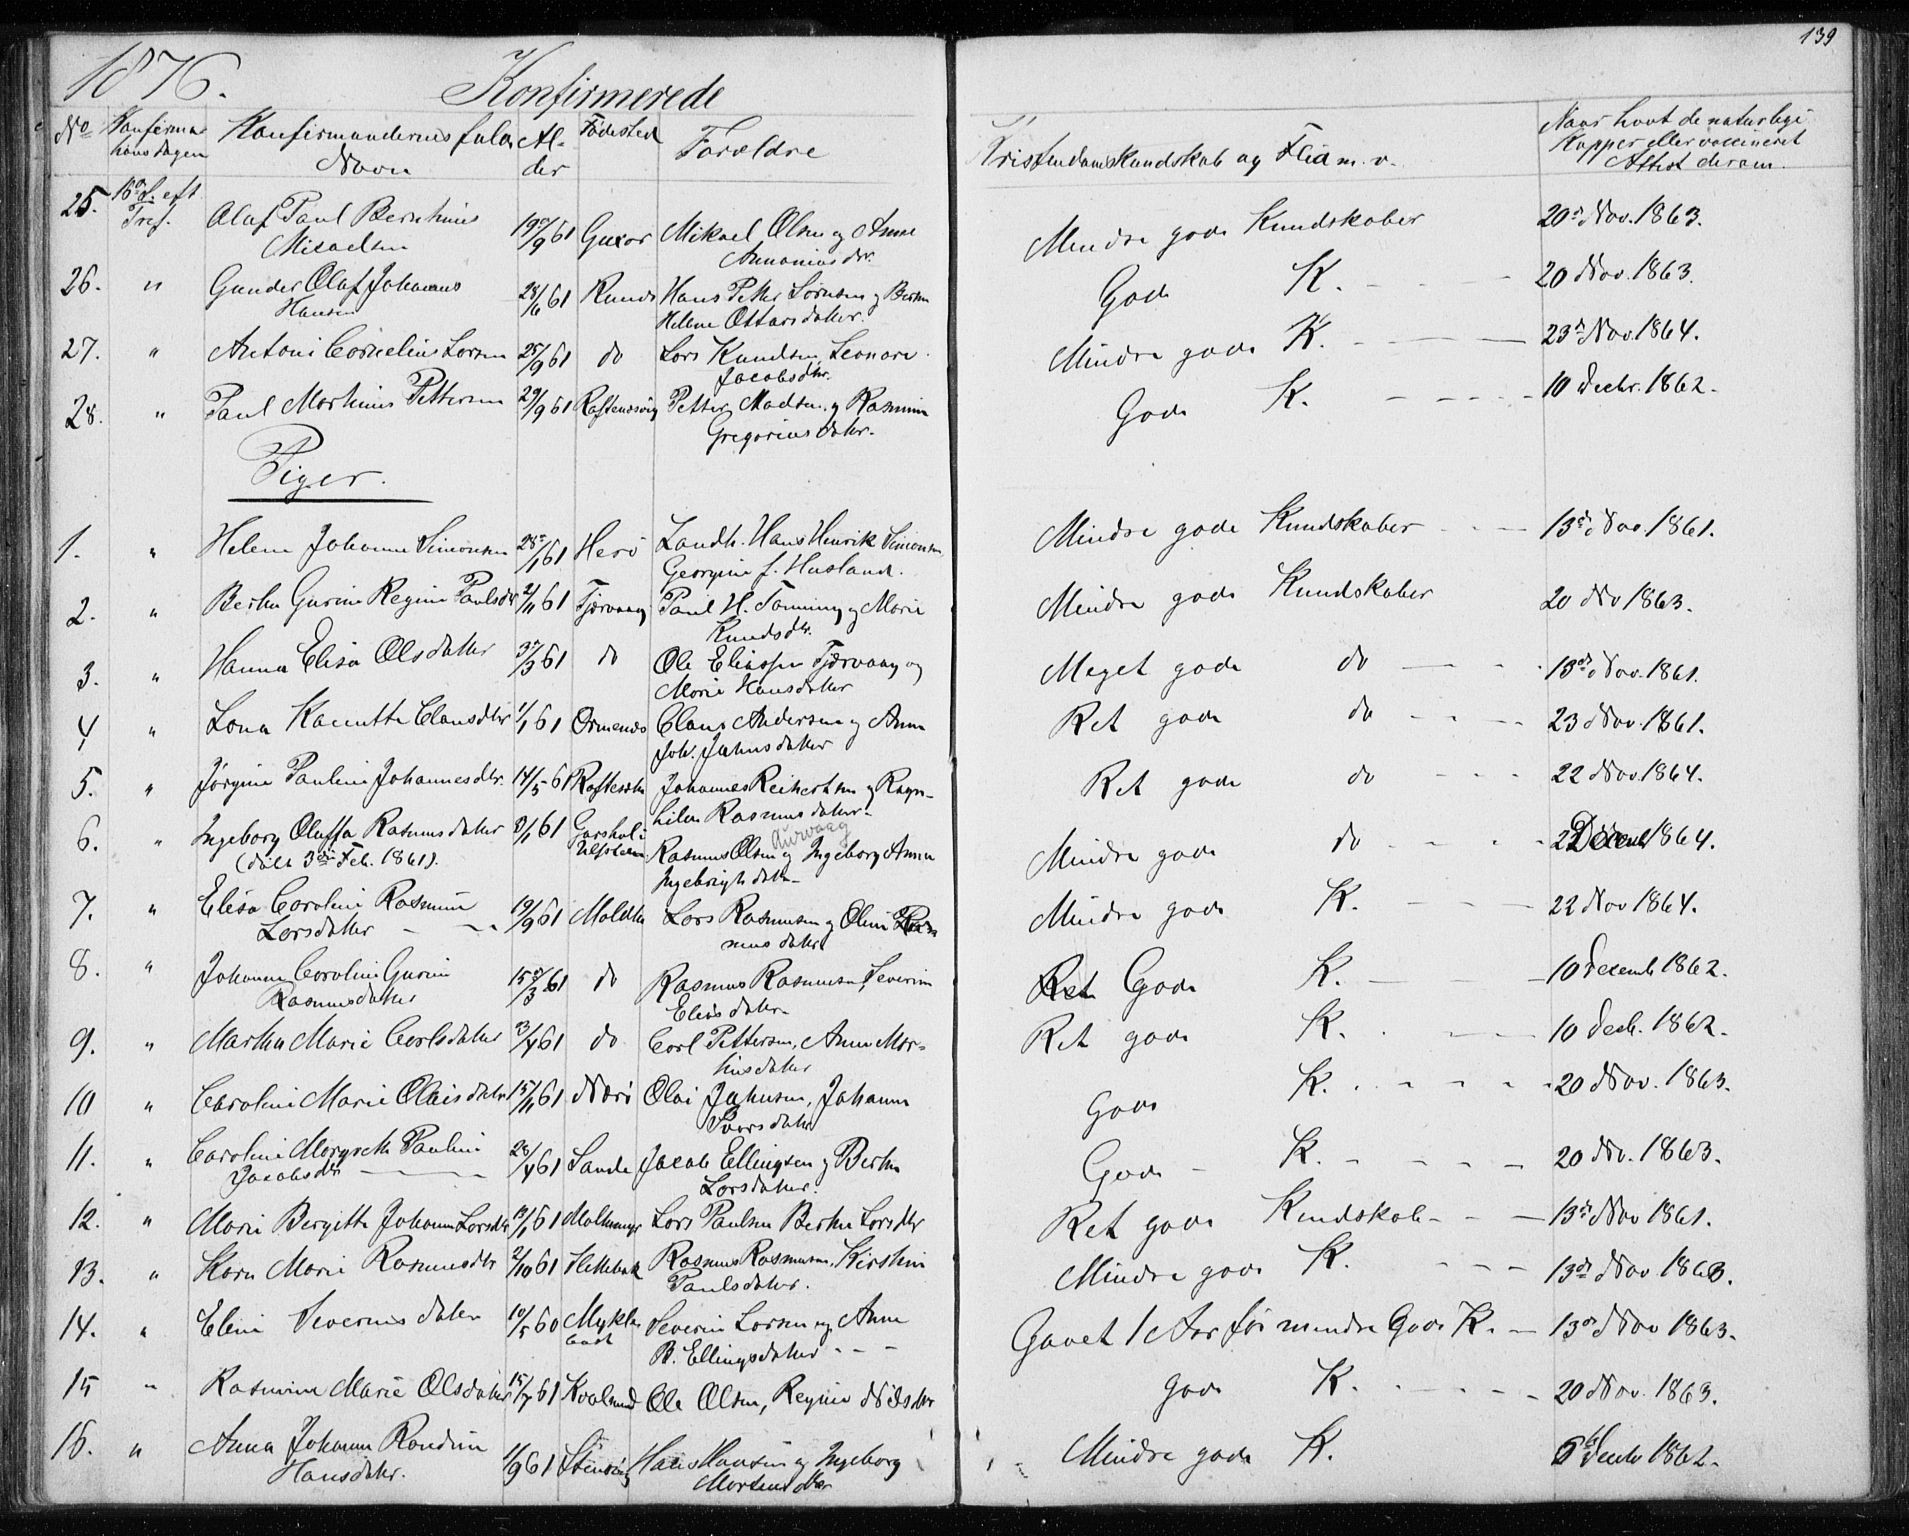 139
1876.
Konfirmerede
No Konfirma Konfirmandernes fulde Al- Fødested Forældre Kristendomskundskab og Flid m. v. Naar havt de naturlige
tions dagen Navn der Kopper eller vaccineret
Attest derom.
25. 16de S. eft. Olaf Paul Bernhines 19de/9 61 Gurso Mikael Olsen og Anne Mindre gode Kundskaber 20de Nov. 1863.
Tref. Micaelsen Annaniasdtr.
26. " Gunder Olaf Johannes 28/6 61 Runde Hans Petter Sørensen og Berthe Gode K. 20 Nov. 1863.
Hansen Helene Ottarsdatter.
27. " Antoni Cornelius Larsen 25/9 61 do Lars Knudsen, Leonore Mindre gode K. 23de Nov. 1864.
Jacobsdtr.
28. " Paul Martinus Pettersen 29/9 61 Petter Madsen og Rasmine Gode K. 10 Decbr. 1862.
Gregoriusdatter.
Piger.
1. " Helene Johanne Simonsen 28de/1 61 Herö Landh. Hans Henrik Simonsen Mindre gode Kundskaber 13de Nov. 1861.
Georgine f. Husland.
2. " Berthe Gurine Regine Paulsdtr 2/11 61 Tjørvaag Paul H. og Marie Mindre gode Kundskaber 20 Nov 1863.
Knudsdtr.
3. " Hanna Elisa Olsdatter 3de/3 61 do Ole Eliassen Tjørvaag og Meget gode do 13de Nov. 1861.
Marie Hansdatter
4. " Lona Kanutte Clausdtr 1/1 61 Ormenæs Claus Andersen og Anne Ret gode do 23 Nov. 1861.
Joh. Johnsdatter
5. " Jørgine Pauline Johannesdtr. 14/5 61 Johannes Reiertsen og Ragn- Ret gode do 22 Nov. 1864.
hilde Rasmusdatter.
6. " Ingeborg Oluffa Rasmusdatter 8/1 61 Garshol i Rasmus Olsen Aurvaag og Ingeborg Anna Mindre gode do 22 Decemb 1864.
(døbt 3die Feb. 1861). Ulfsteen Ingebrigtsdatr
7. " Elisa Caroline Rasmine 19/9 61 Moldtu Lars Rasmussen og Oline Ras- Mindre gode K. 22 Nov 1864.
Larsdatter musdatter
8. " Johanne Caroline Gurine 15de/3 61 do Rasmus Rasmussen, Severine Ret Gode K. 10 Decemb 1862.
Rasmusdatter Eliasdatter
9. " Marthe Marie Carlsdatter 3/4 61 do Carl Pettersen, Anne Mar- Ret gode K. 10 Decb. 1862.
tinsdatter
10 " Caroline Marie Olaisdatter 15/11 61 Nærö Olai Johnsen, Johanne Gode K. 20 Nov. 1863.
Iversdatter
11. " Caroline Margrethe Pauline 28/4 61 Sande Jacob Ellingsen og Berthe Gode K. 20 Nov. 1863.
Jacobsdtr Larsdatter.
12. " Marie Bergitte Johanne Larsdtr 13/1 61 Molnmyr Lars Paulsen Berthe Larsdtr Ret gode Kundskab 13de Nov 1861.
13. " Karn Marie Rasmusdtr 2/10 61 Flettebak Rasmus Rasmussen, Kirstine Mindre gode K. 13de Nov 1863.
Paulsdatter.
14. " Eline Severinsdatter 10/5 60 Mykle- Severin Larsen og Anne Gaaet 1 Aar før mindre Gode K. 13de Nov 1863.
bost B. Ellingsdatter
15 " Rasmine Marie Olsdatter 15/7 61 Kvalsund Ole Olsen, Regine Nilsdtr Gode K. 20 Nov. 1863.
16. " Anna Johanne Randine 1/9 61 Hans Hansen og Ingeborg Mindre gode K. 6te Decbr 1862.
Hansdatter. Mortensdtr